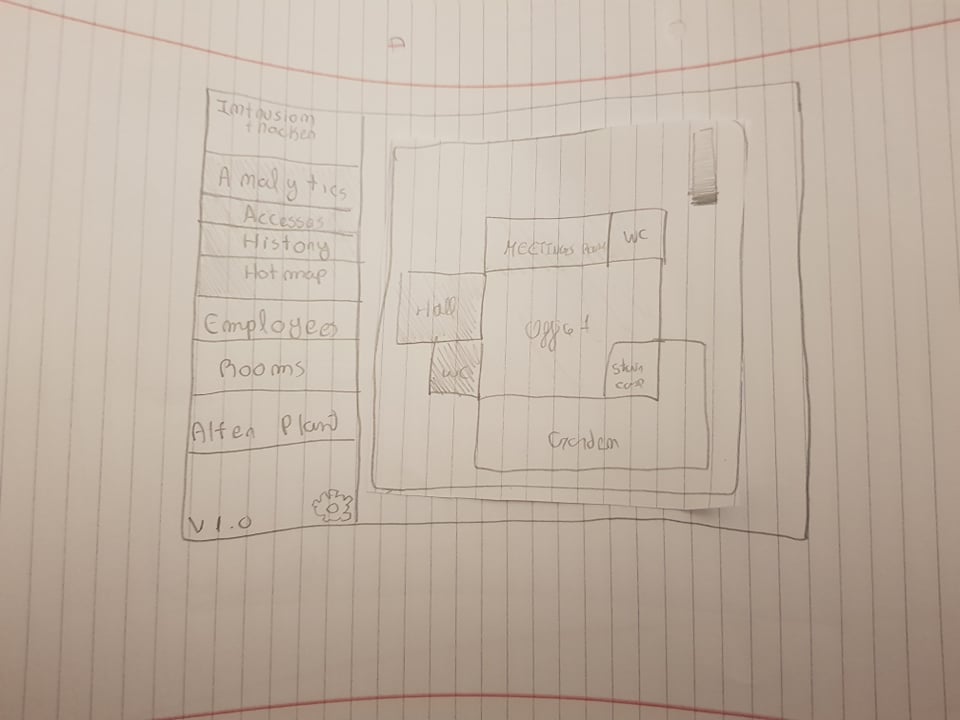 Intrusion
tracker
Analytics
Accesses
History
Hotmap
Employees
Rooms
Alter Plant
V 1.0
MEETINGS ROOM
WC
Hall
Office 1
WC
Stair
case
Garden